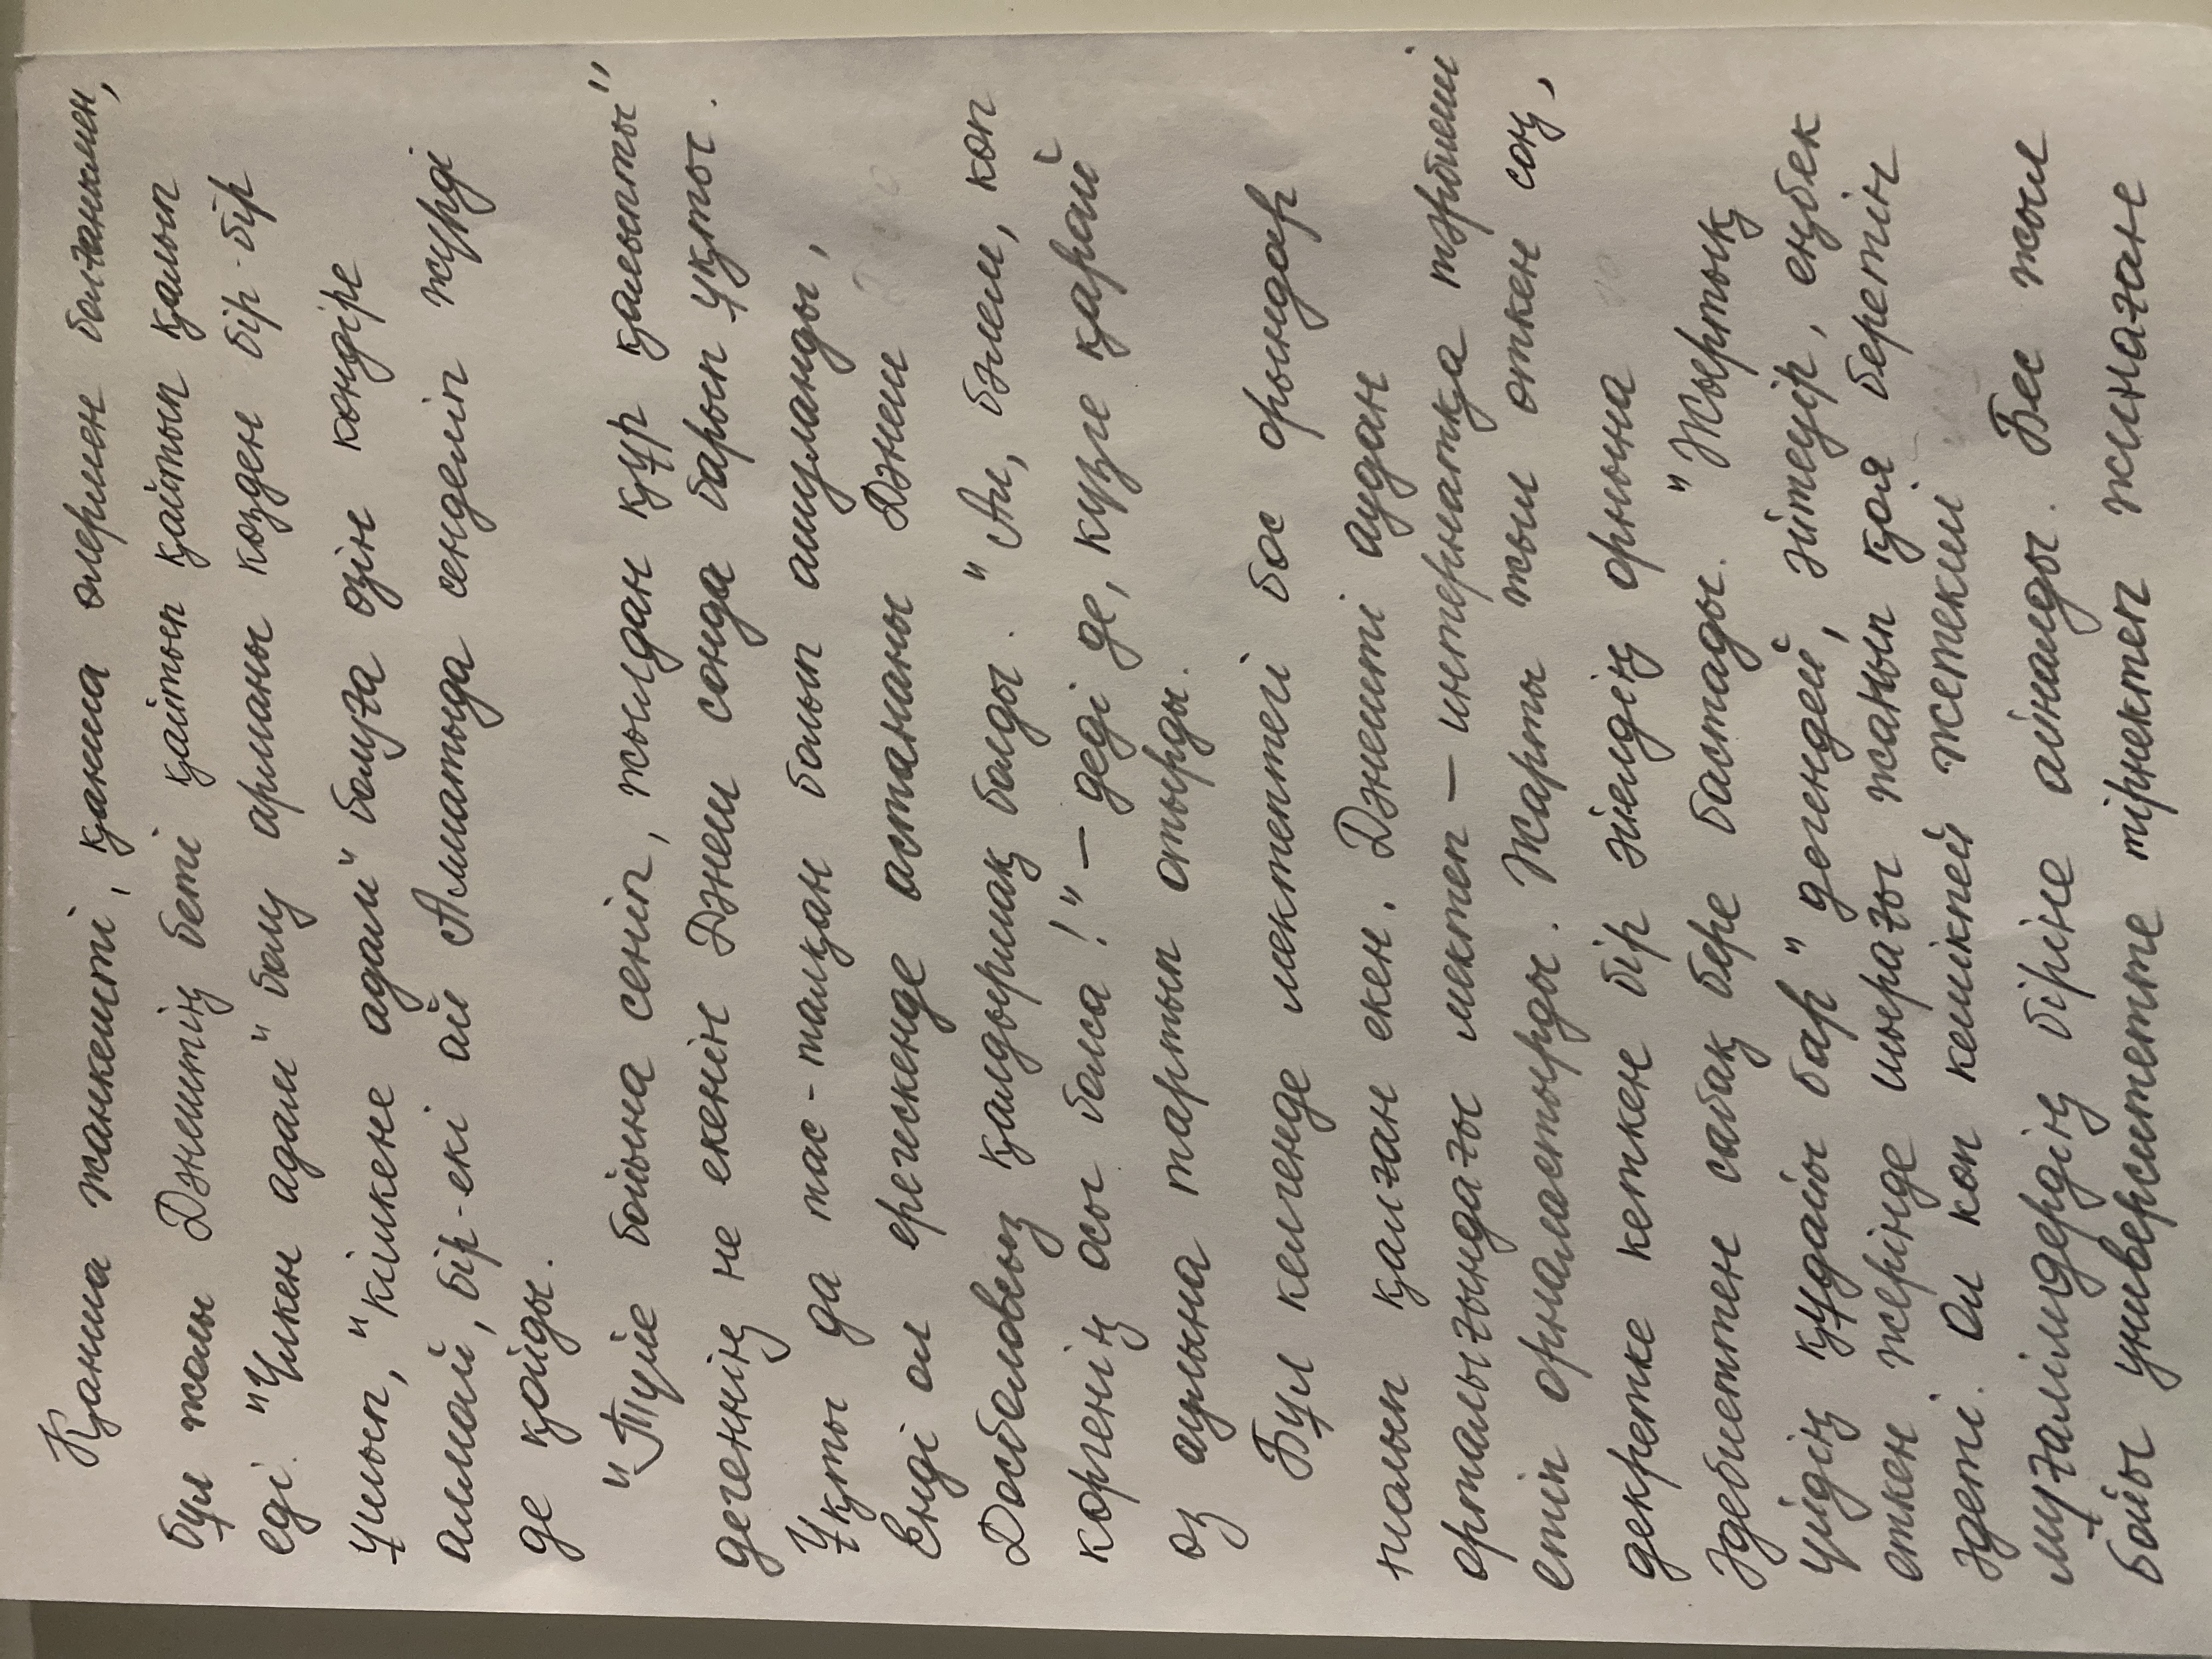 Қанша жанкешті, қанша өлермен болғанымен,
бұл жолы Дәнештің беті қайтып қайтып қалып
еді. "Үлкен адам" болу арманы көзден бір-бір
ұшып, "кішкене адам" болуға өзін көндіре
алмай, бір-екі ай Алматыда сенделіп жүрді
де қойды.
"Түйе бойына сеніп, жылдан құр қалыпты"
дегеннің не екенін Дәнеш сонда барып ұқты.
Ұқты да тас-талқан болып ашуланды,
Енді ол ерегескенде астананы Дәнеш
Досболовсыз қалдырмақ болды. "Ал, бәлем, көп
көргенің осы болса!" – деді де, күзге қарай
өз аулына тартып отырды.
Бұл келгенде мектептегі бос орындар
толып қалған екен. Дәнешті аудан
орталығындағы мектеп – интернатқа тәрбиеші
етіп орналастырды. Жарты жыл өткен соң,
декретке кеткен бір әйелдің орнына
әдебиеттен сабақ бере бастады. "Жыртық
үйдің құдайы бар" дегендей, әйтеуір, еңбек
еткен жерінде шырағы жанып қоя беретін
әдеті. Ол көп кешікпей жетекші
мұғалімдердің біріне айналды. Бес жыл
бойы университетте тірнектеп жинаған